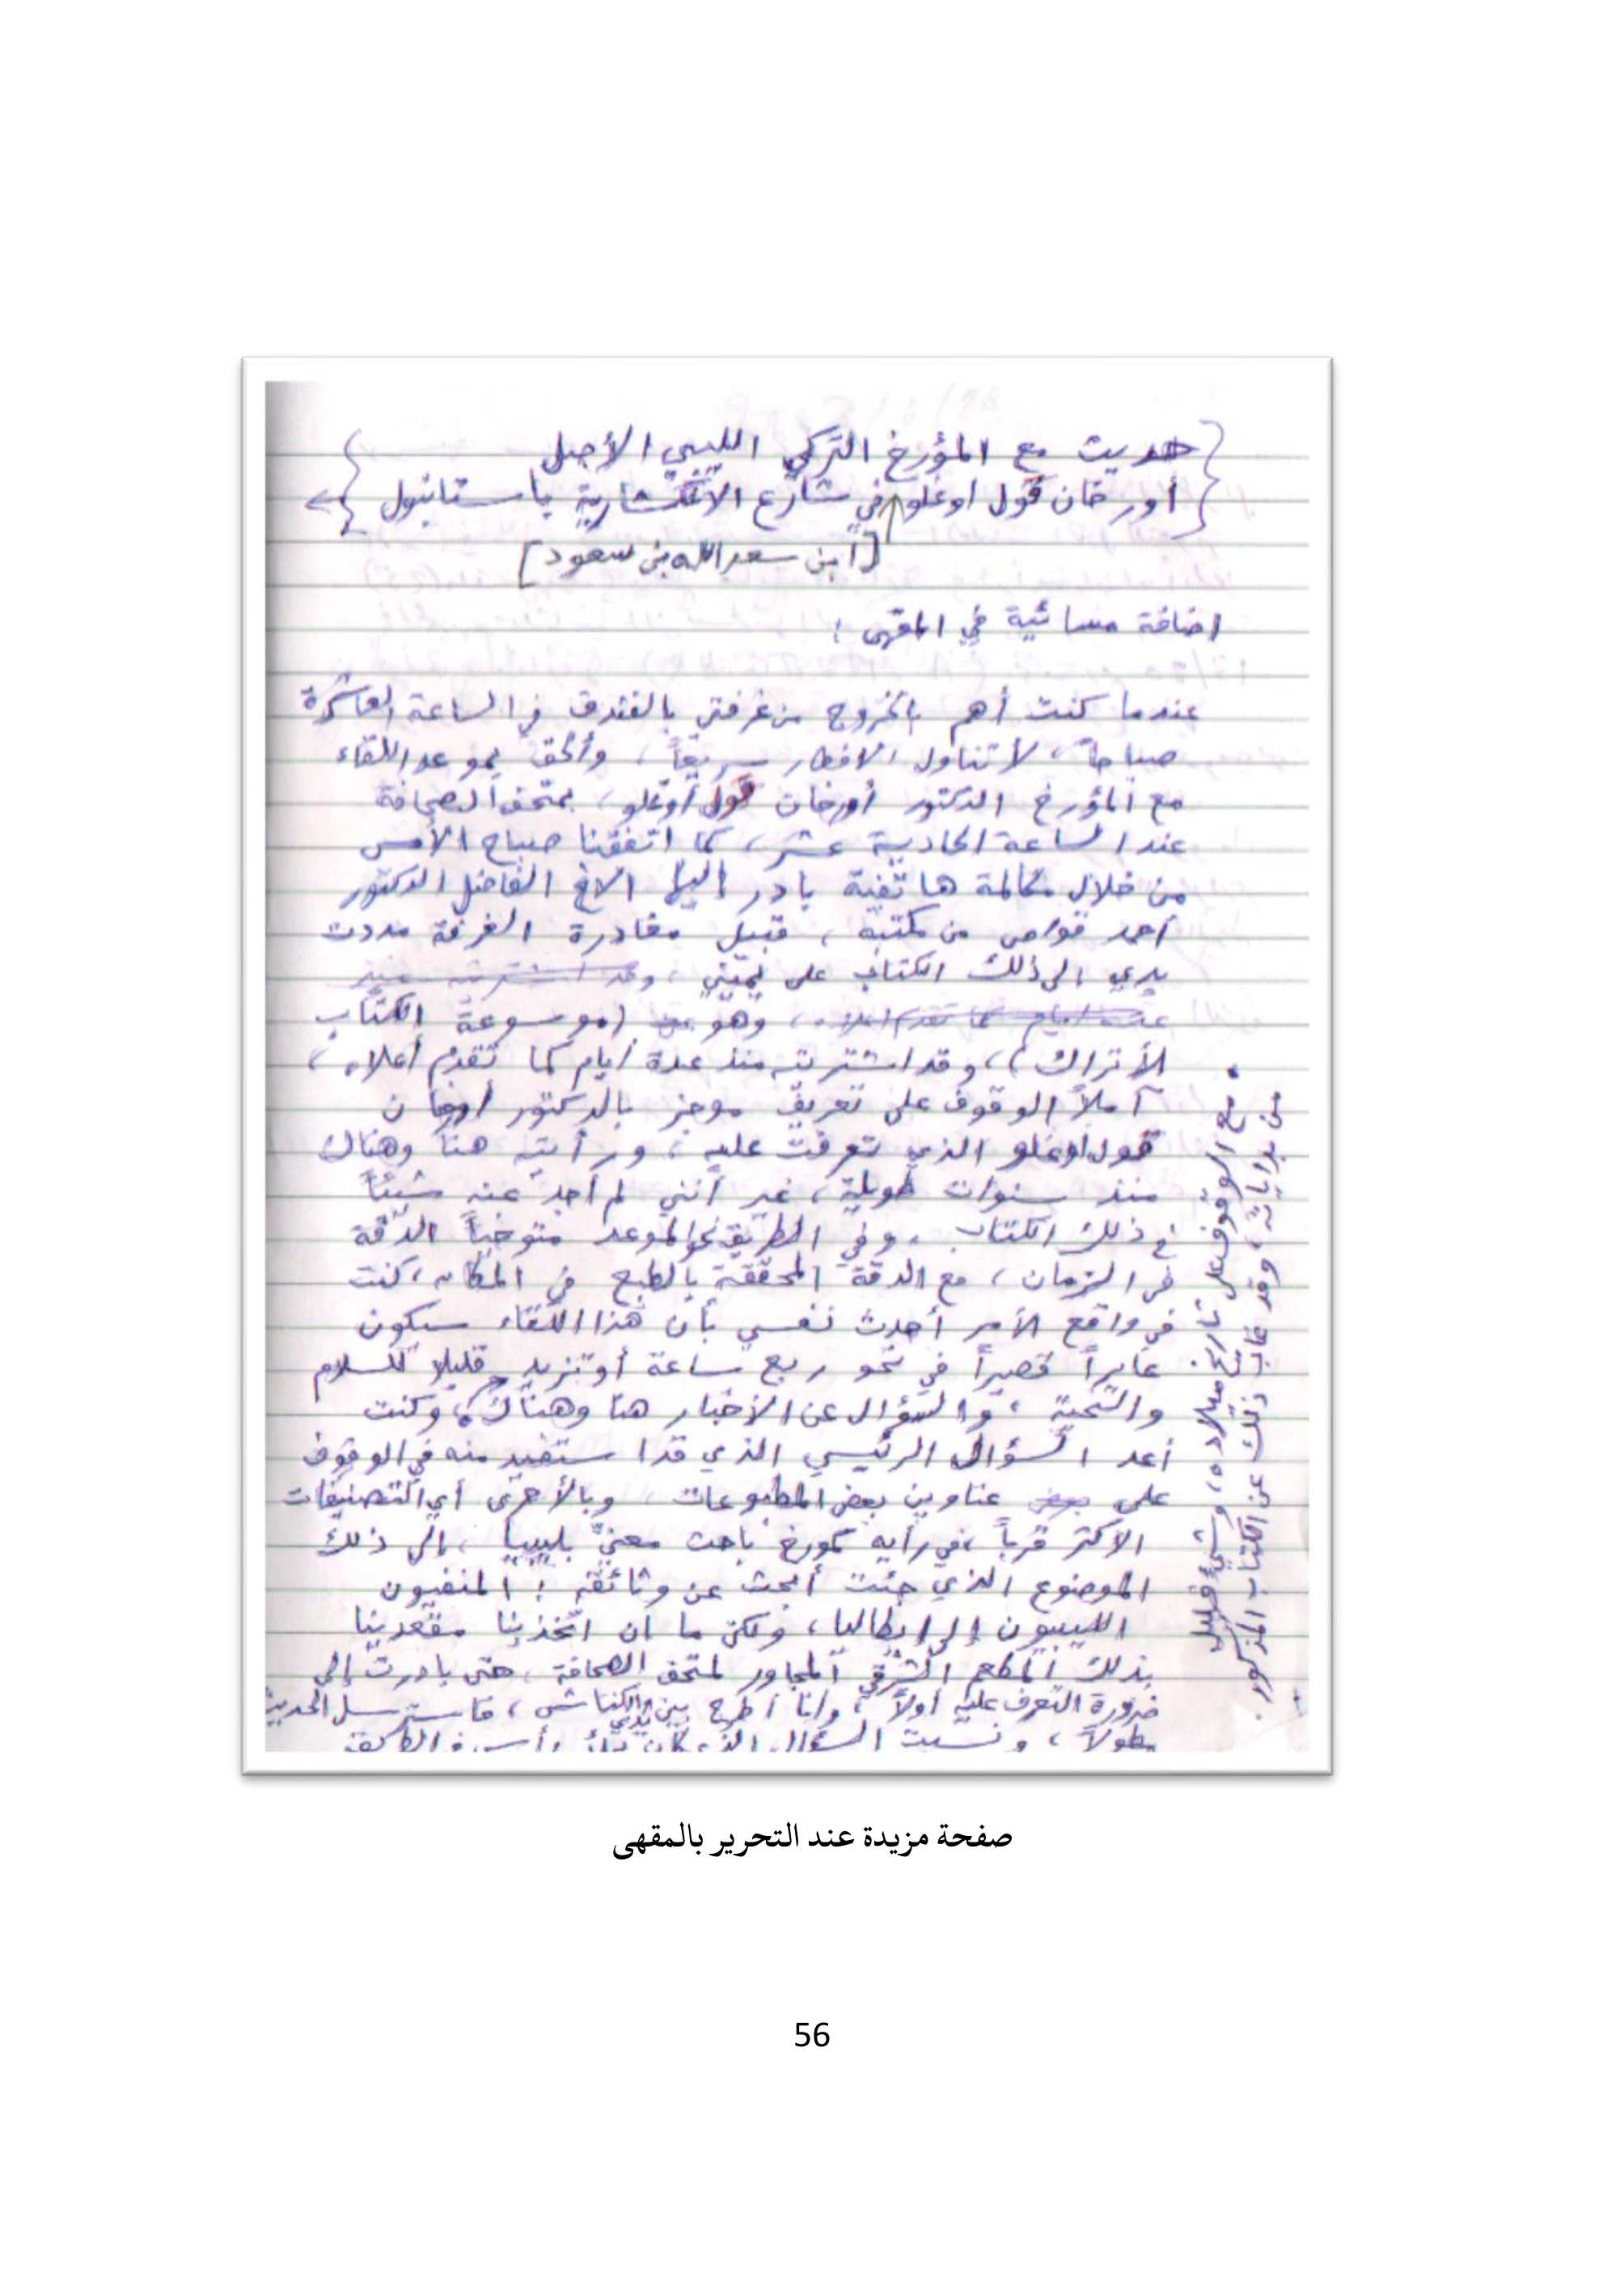 {حديث مع المؤرخ التركي الليبي الأصل
أورخان قول اوغلو في شارع الانكشارية باستانبول}
[ابن سعد الله بن سعود]
اضافة مسائية في المقهى :
عندما كنت أهم بالخروج من غرفتي بالفندق في الساعة العاشرة
صباحاً، لأتناول الافطار سريعاً، وألحق بموعد اللقاء
مع المؤرخ الدكتور أورخان قول أوغلو، بمتحف الصحافة
عند الساعة الحادية عشر، كما اتفقنا صباح الأمس
من خلال مكالمة هاتفية بادر إليها الاخ الفاضل الدكتور
أحمد قواص من مكتبه، قبيل مغادرة الغرفة مددت
يدي الى ذلك الكتاب على يميني، وقد اشتريته منذ
عدة أيام كما تقدم أعلاه، وهو (موسوعة الكتّاب
الأتراك)، وقد اشتريته منذ عدة أيام كما تقدم أعلاه،
آملاً الوقوف على تعريف موجز بالدكتور أورخان
قول اوغلو الذي تعرفت عليه، ورأيته هنا وهناك
منذ سنوات طويلة، غير أنني لم أجد عنه شيئاً
في ذلك الكتاب. وفي الطريق نحو الموعد متوخياً الدقة
في الزمان، مع الدقة المحققة بالطبع في المكان، كنت
في واقع الأمر أحدث نفسي بأن هذا اللقاء سيكون
عابراً قصيراً في نحو ربع ساعة أو تزيد قليلا للسلام
والتحية، والسؤال عن الأخبار هنا وهناك، وكنت
أعد السؤال الرئيسي الذي قد استفيد منه في الوقوف
على بعض عناوين بعض المطبوعات، وبالأحرى أي التصنيفات
الاكثر قرباً، في رأيه كمؤرخ باحث معنيّ بليبيا، إلى ذلك
الموضوع الذي جئت أبحث عن وثائقه : المنفيون
الليبيون إلى إيطاليا، ولكن ما ان اتخذنا مقعدينا
بذلك المطعم الشرقي المجاور لمتحف الصحافة، حتى بادرت إلى
ضرورة التعرف عليه أولاً، وانا أطرح بين يدي الكناش، فاسترسل الحديث
طولاً، ونسيت السؤال الذي كان
• مع الوقوف على تاريخ ميلاده، وشيء قليل
من بداياته، وقد غاب ذلك عن الكتاب المذكور.
صفحة مزيدة عند التحرير بالمقهى
56